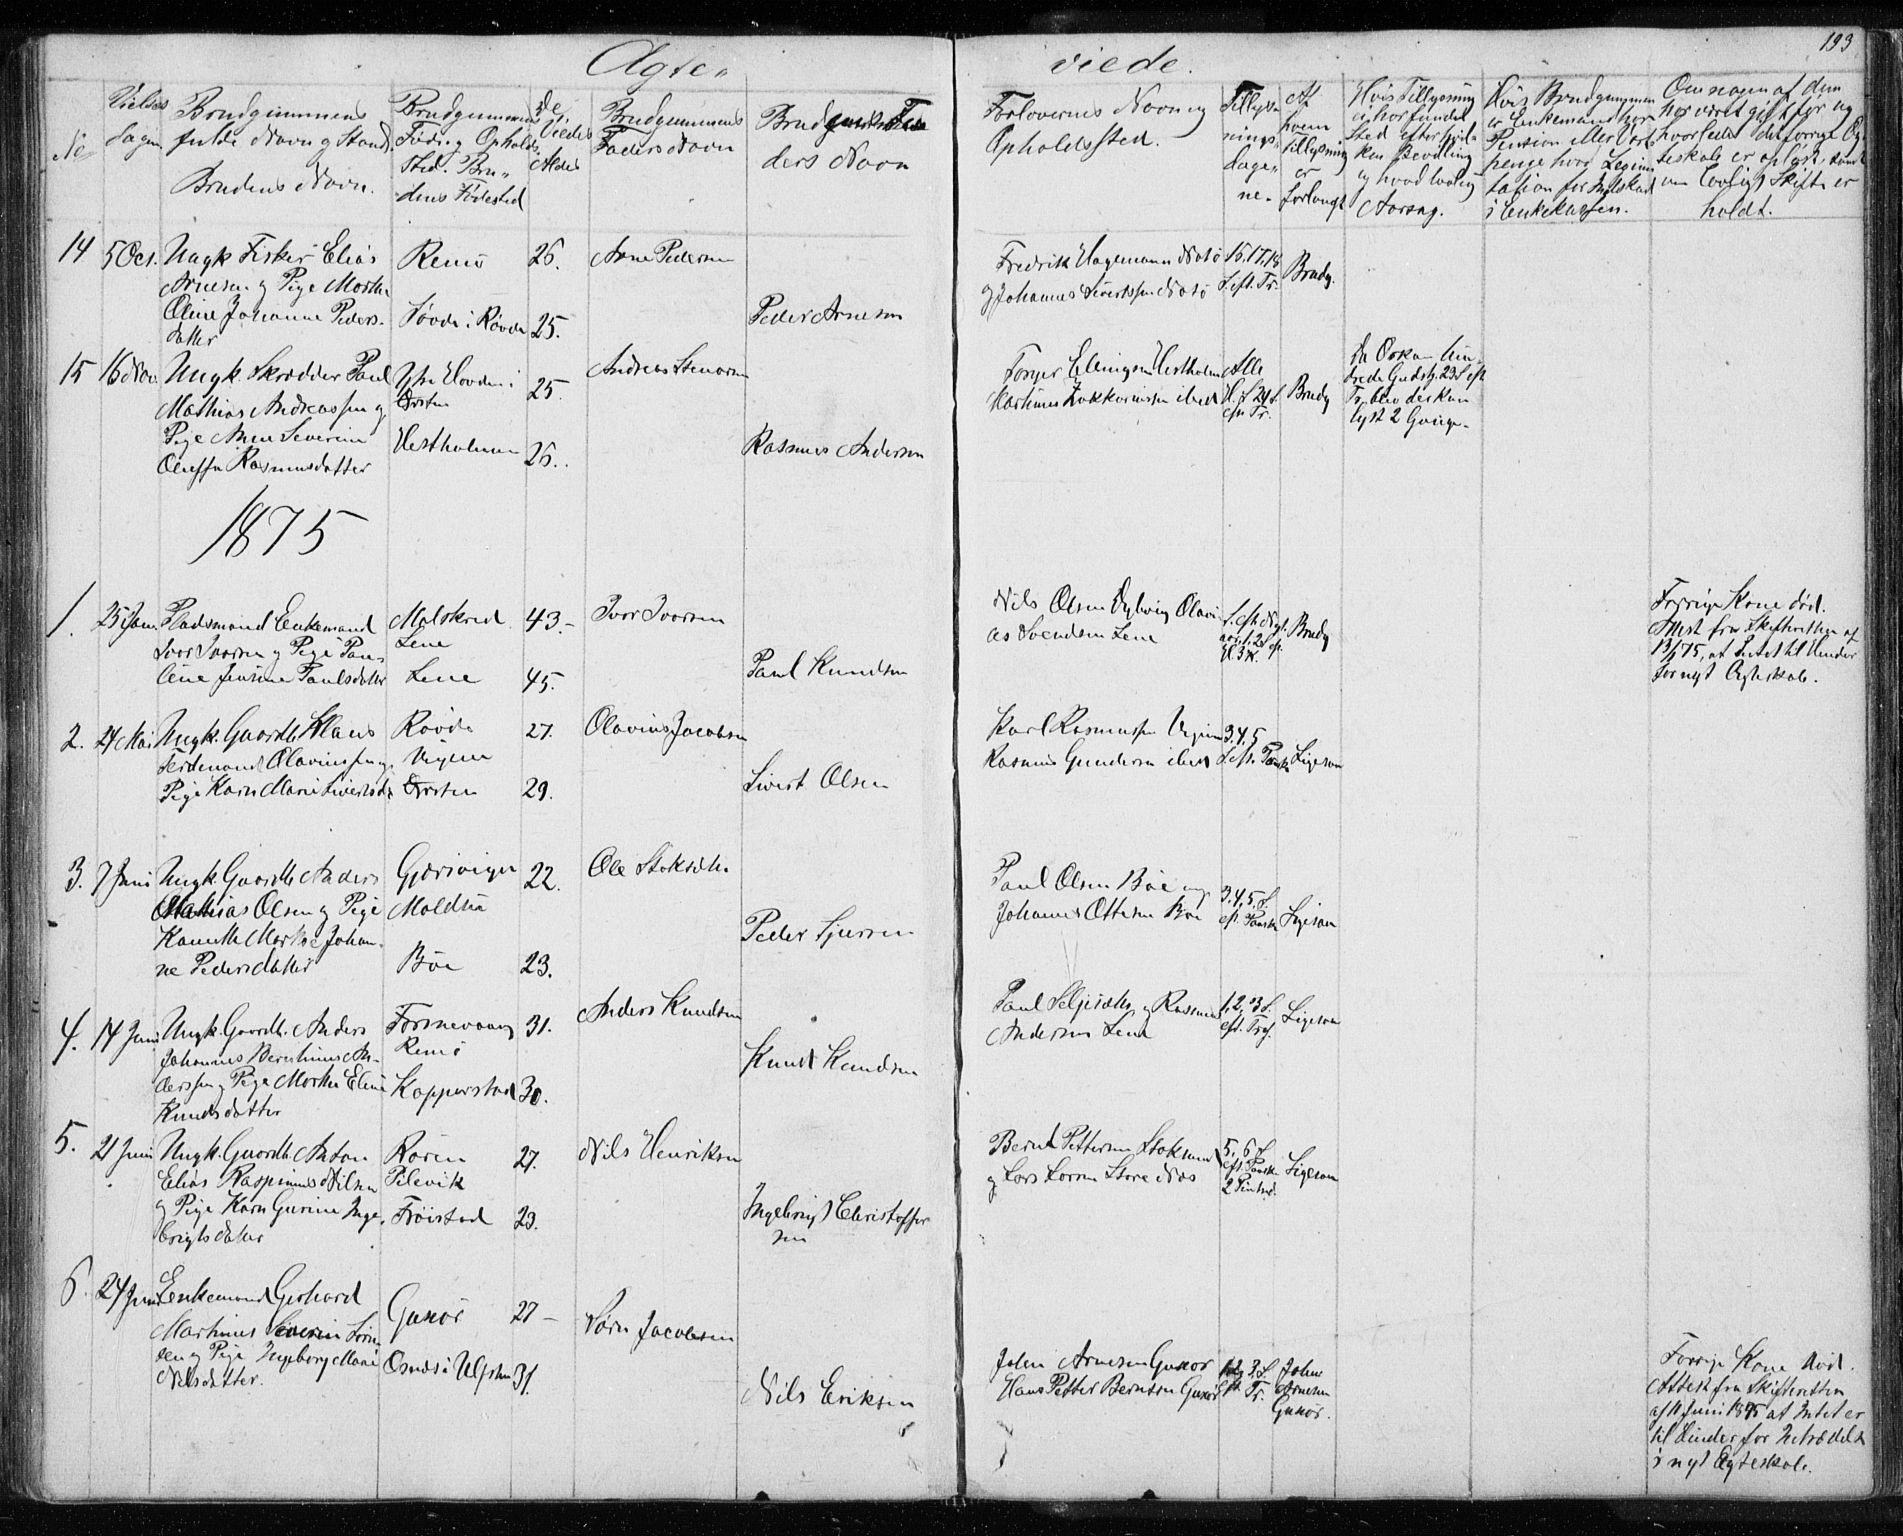 Ægte-
viede.
193
No
Vielses
dagen
Brudgummens
fulde Navn og Stand
Brudens Navn.
Brudgummens
Føde- og Opholds-
sted. Bru-
dens Fødested
De
Viedes
Alder
Brudgummens
Faders Navn
Brudens Fa-
ders Navn
Forlovernes Navn og
Opholdssted.
Tillys-
nings-
dage-
ne.
Af
hvem
Tillysning
er
forlangt
Hvis Tillysning
ei har fundet
Sted efter hvil-
ken Bevilling
og hvad lovlig
Aarsag.
Hvis Brudgummen
er Enkemand har
Pension eller Vart-
penge hvor Legimi-
tation for Indskud
i Enkekassen.
Om nogen af dem
har været gift før og
hvorledes det forrige Æg-
teskab er opløst, samt
om lovligt Skifte er
holdt.
14
5 Oct.
Ungk Fisker Elias
Arnesen og Pige Marthe
Oline Johanne Peders-
datter
Remø
Søvde i Røvde
26.
25.
Arne Pedersen
Peder Arnesen
Fredrik Hagemann
og Johannes Sivertssen
16.17.18
S. eft. Tr.
Brudg.
15
16 Nov.
Ungk. Skrædder Paul
Mathias Andreassen og
Pige Anne Severine
Oluffa Rasmusdatter
Ytre Hovden i
Ørsten
Vestholmen
25.
26.
Andreas Stenersen
Rasmus Andersen
Torger Ellingsen Vestholmen
Martinus Zakkariassen ibid
Brudg
Da Orkan hin-
drede Gudstj. 23 S eft
Tr. blev der kun
lyst 2 Gange.
1875
1.
25 Jan.
Pladsmand Enkemand
Ivar Ivarsen og Pige Pau-
line Jensine Paulsdatter
Molskred
Lene
Lene
43.
45.
Ivar Ivarsen
Paul Knudsen
Nils Olsen
Olavi
as Svendsen Lene
Brudg
Forrige Kone død.
Attest fra Skifteretten af
13/1 75, at Intet til Hinder
for nyt Ægteskab.
2.
24 Mai
Ungk. Gaardb. Klaus
Ferdenand Olavinssen og
Pige Karn Marie Sivertsdr
Røvde
Vigene
Ørsten
27.
29.
Olavius Jacobsen
Sivert Olsen
Karl Rasmussen Vigene
Rasmus Gundersen ibid
3.4.5
S. eft. Paaske
Ligesom
3.
7 Juni
Ungk. Gaardb. Anders
Mathias Olsen og Pige
Marthe Johan-
ne Pedersdatter
Gjærsvigen
Moldtu
Bøe
22.
23.
Ole Stoksæth
Peder Sjursen
Paul Olsen Bøe og
Johannes Ottesen Bøe
3.4.5. S.
eft. Paaske
Ligesom
4.
14 Juni
Ungk. Gaardb. Anders
Johannes Berntinus An-
derssen og Pige Marthe Eline
Knudsdatter
Fornevaag
Remø
Kopperstad
31.
30.
Anders Knudsen
Knud Knudsen
Paul Seljesæth og Rasmus
Andersen Lene
1, 2, 3 S.
eft. Tref.
Ligesom
5.
21 Juni
Ungk. Gaardb. Anton
Elias Raspinus Nilsen
og Pige Karn Gurine Inge-
brigtsdatter
Raaen
Pilevik
Frøistad
27.
23.
Nils Henriksen
Ingebrigt Christoffer
sen
Bernt Pettersen Stoksund
og Lars Larsen Store Nos
5. 6 S
eft. Paaske
2 Pintsed.
Ligesom
6.
24 Juni
Enkemand Gerhard
Martinus Severin Sørn-
sen og Pige Ingeborg Marie
Nilsdatter.
Guskør
Osnæs i Ulfsten
27
31.
Sørn Jacobsen
Nils Eriksen
John Arnesen Guskør
Hans Petter Berntsen Guskør
1. 2, 3. S.
eft. Tr.
John
Arnesen
Guskør.
Forrige Kone død.
Attest fra Skifteretten
af 11 Juni 1875 at Intet er
til Hinder for Indtrædelse
i nyt Ægteskab.